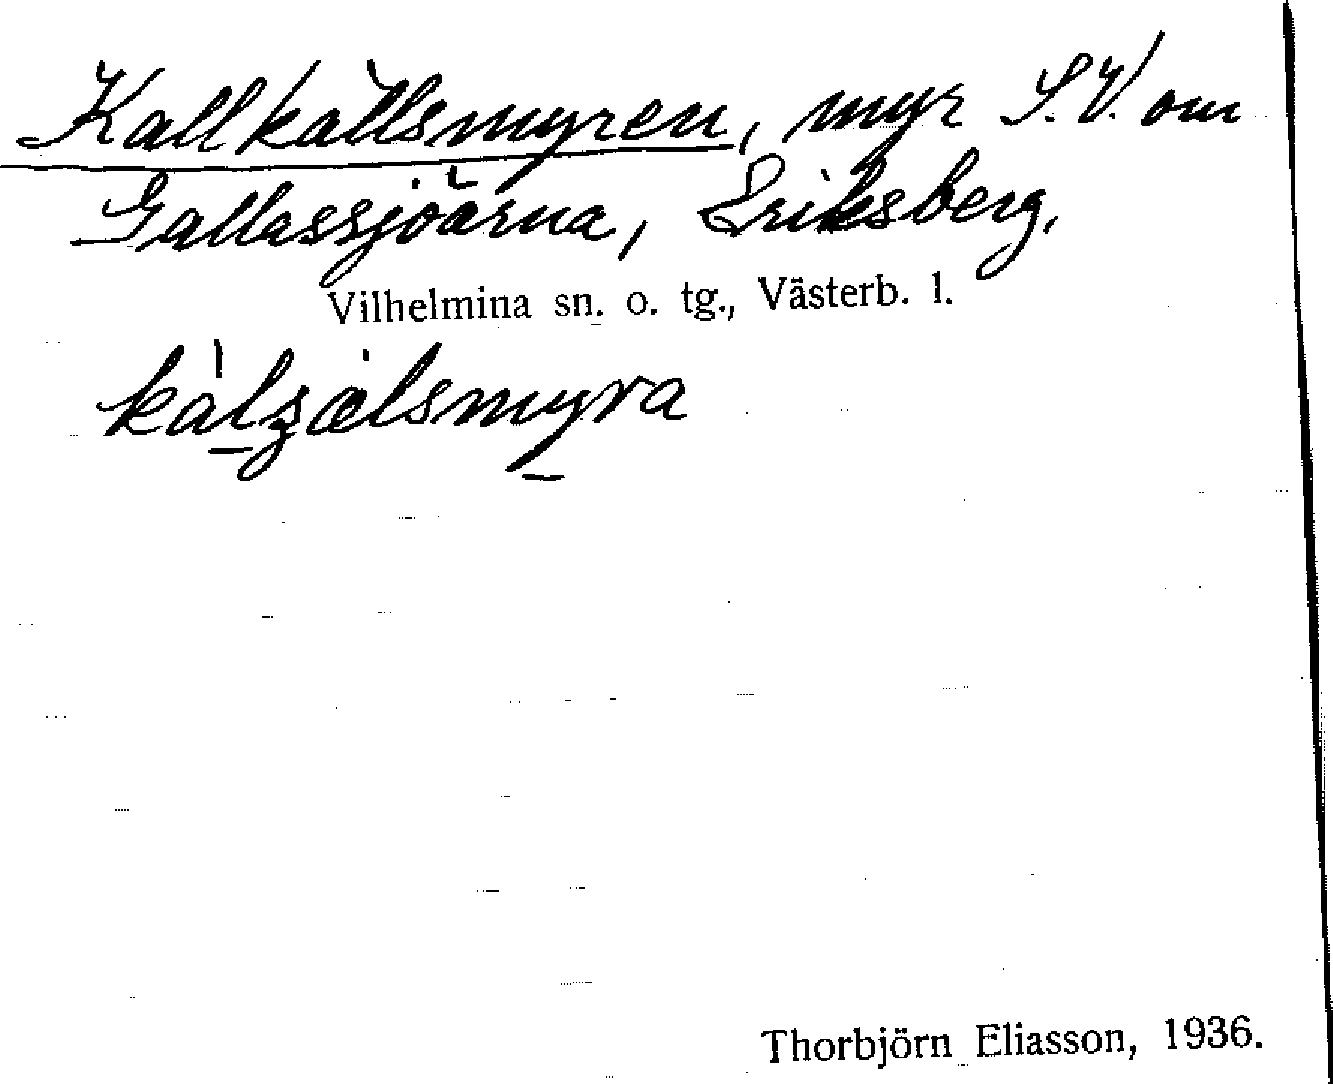 Kallkällsmyren, myr S.V. om
Gallassjöarna, Eriksberg,
Vilhelmina sn. o. tg., Västerb. l.
Thorbjörn Eliasson, 1936.